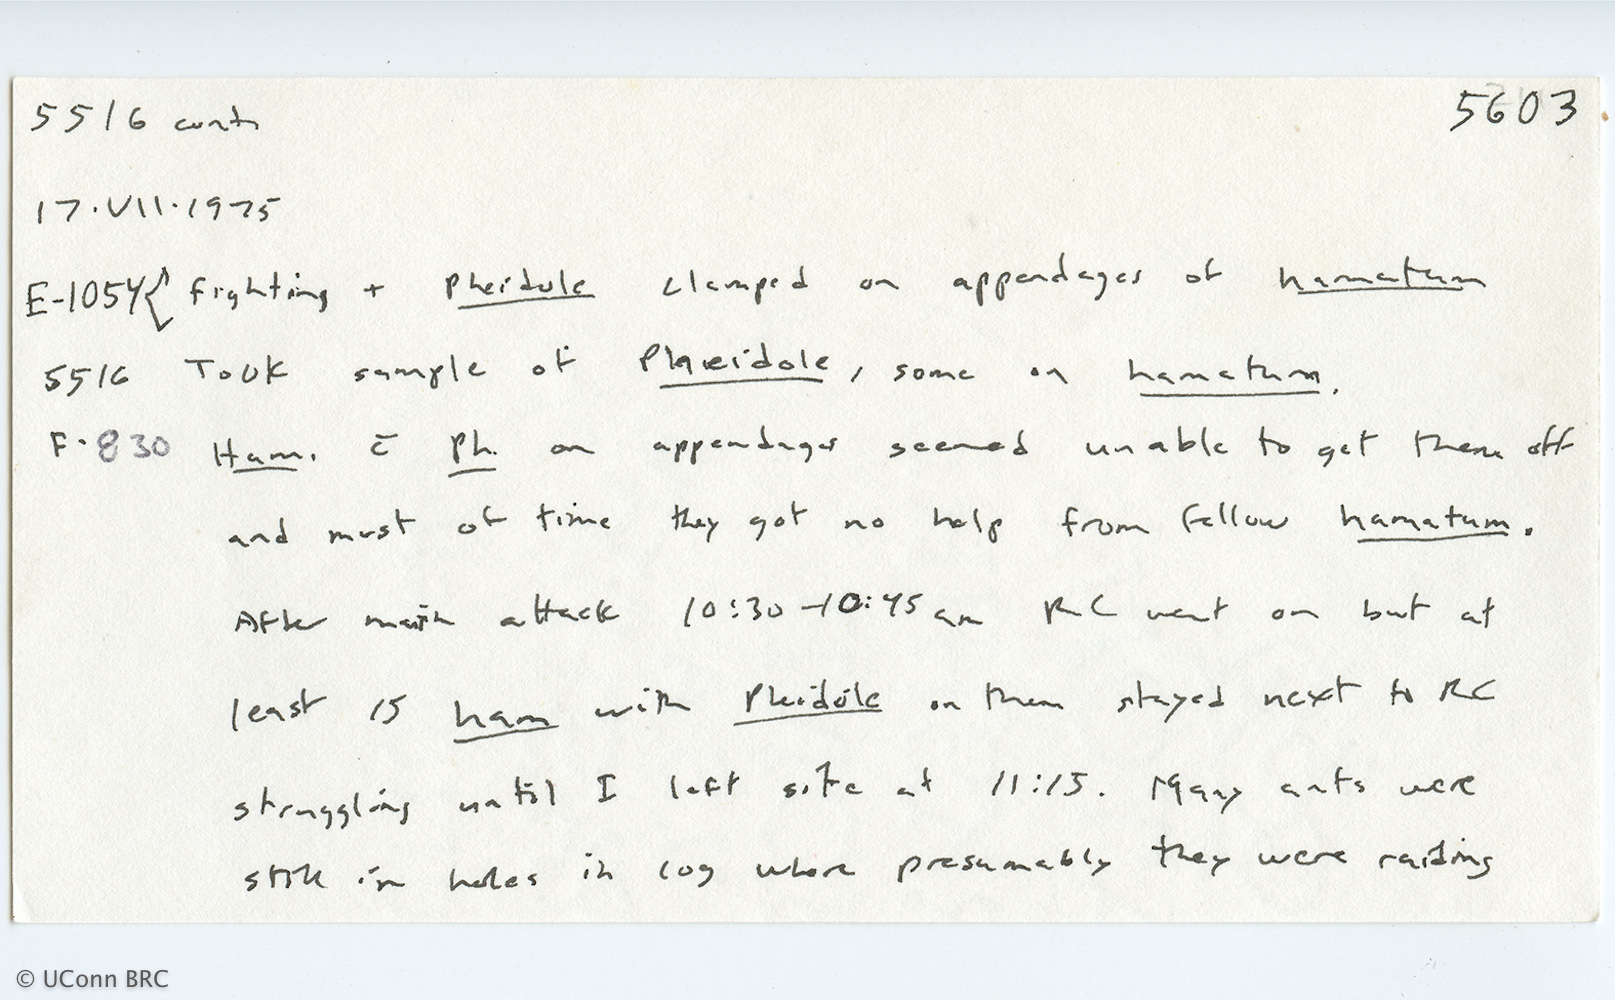 5516 cont. 5603
17.VII.1975
E-1054{ fighting + Pheidole clamped on appendages of hamatum
5516 Took sample of Pheidole, some on hamatum.
F.830 Ham. c̄ Ph. on appendages seemed unable to get them off
and most of time they got no help from fellow hamatum.
After main attack 10:30-10:45 am RC went on but at
least 15 ham with Pheidole on them stayed next to RC
struggling until I left site at 11:15. Many ants were
still in holes in log where presumably they were raiding
© UConn BRC